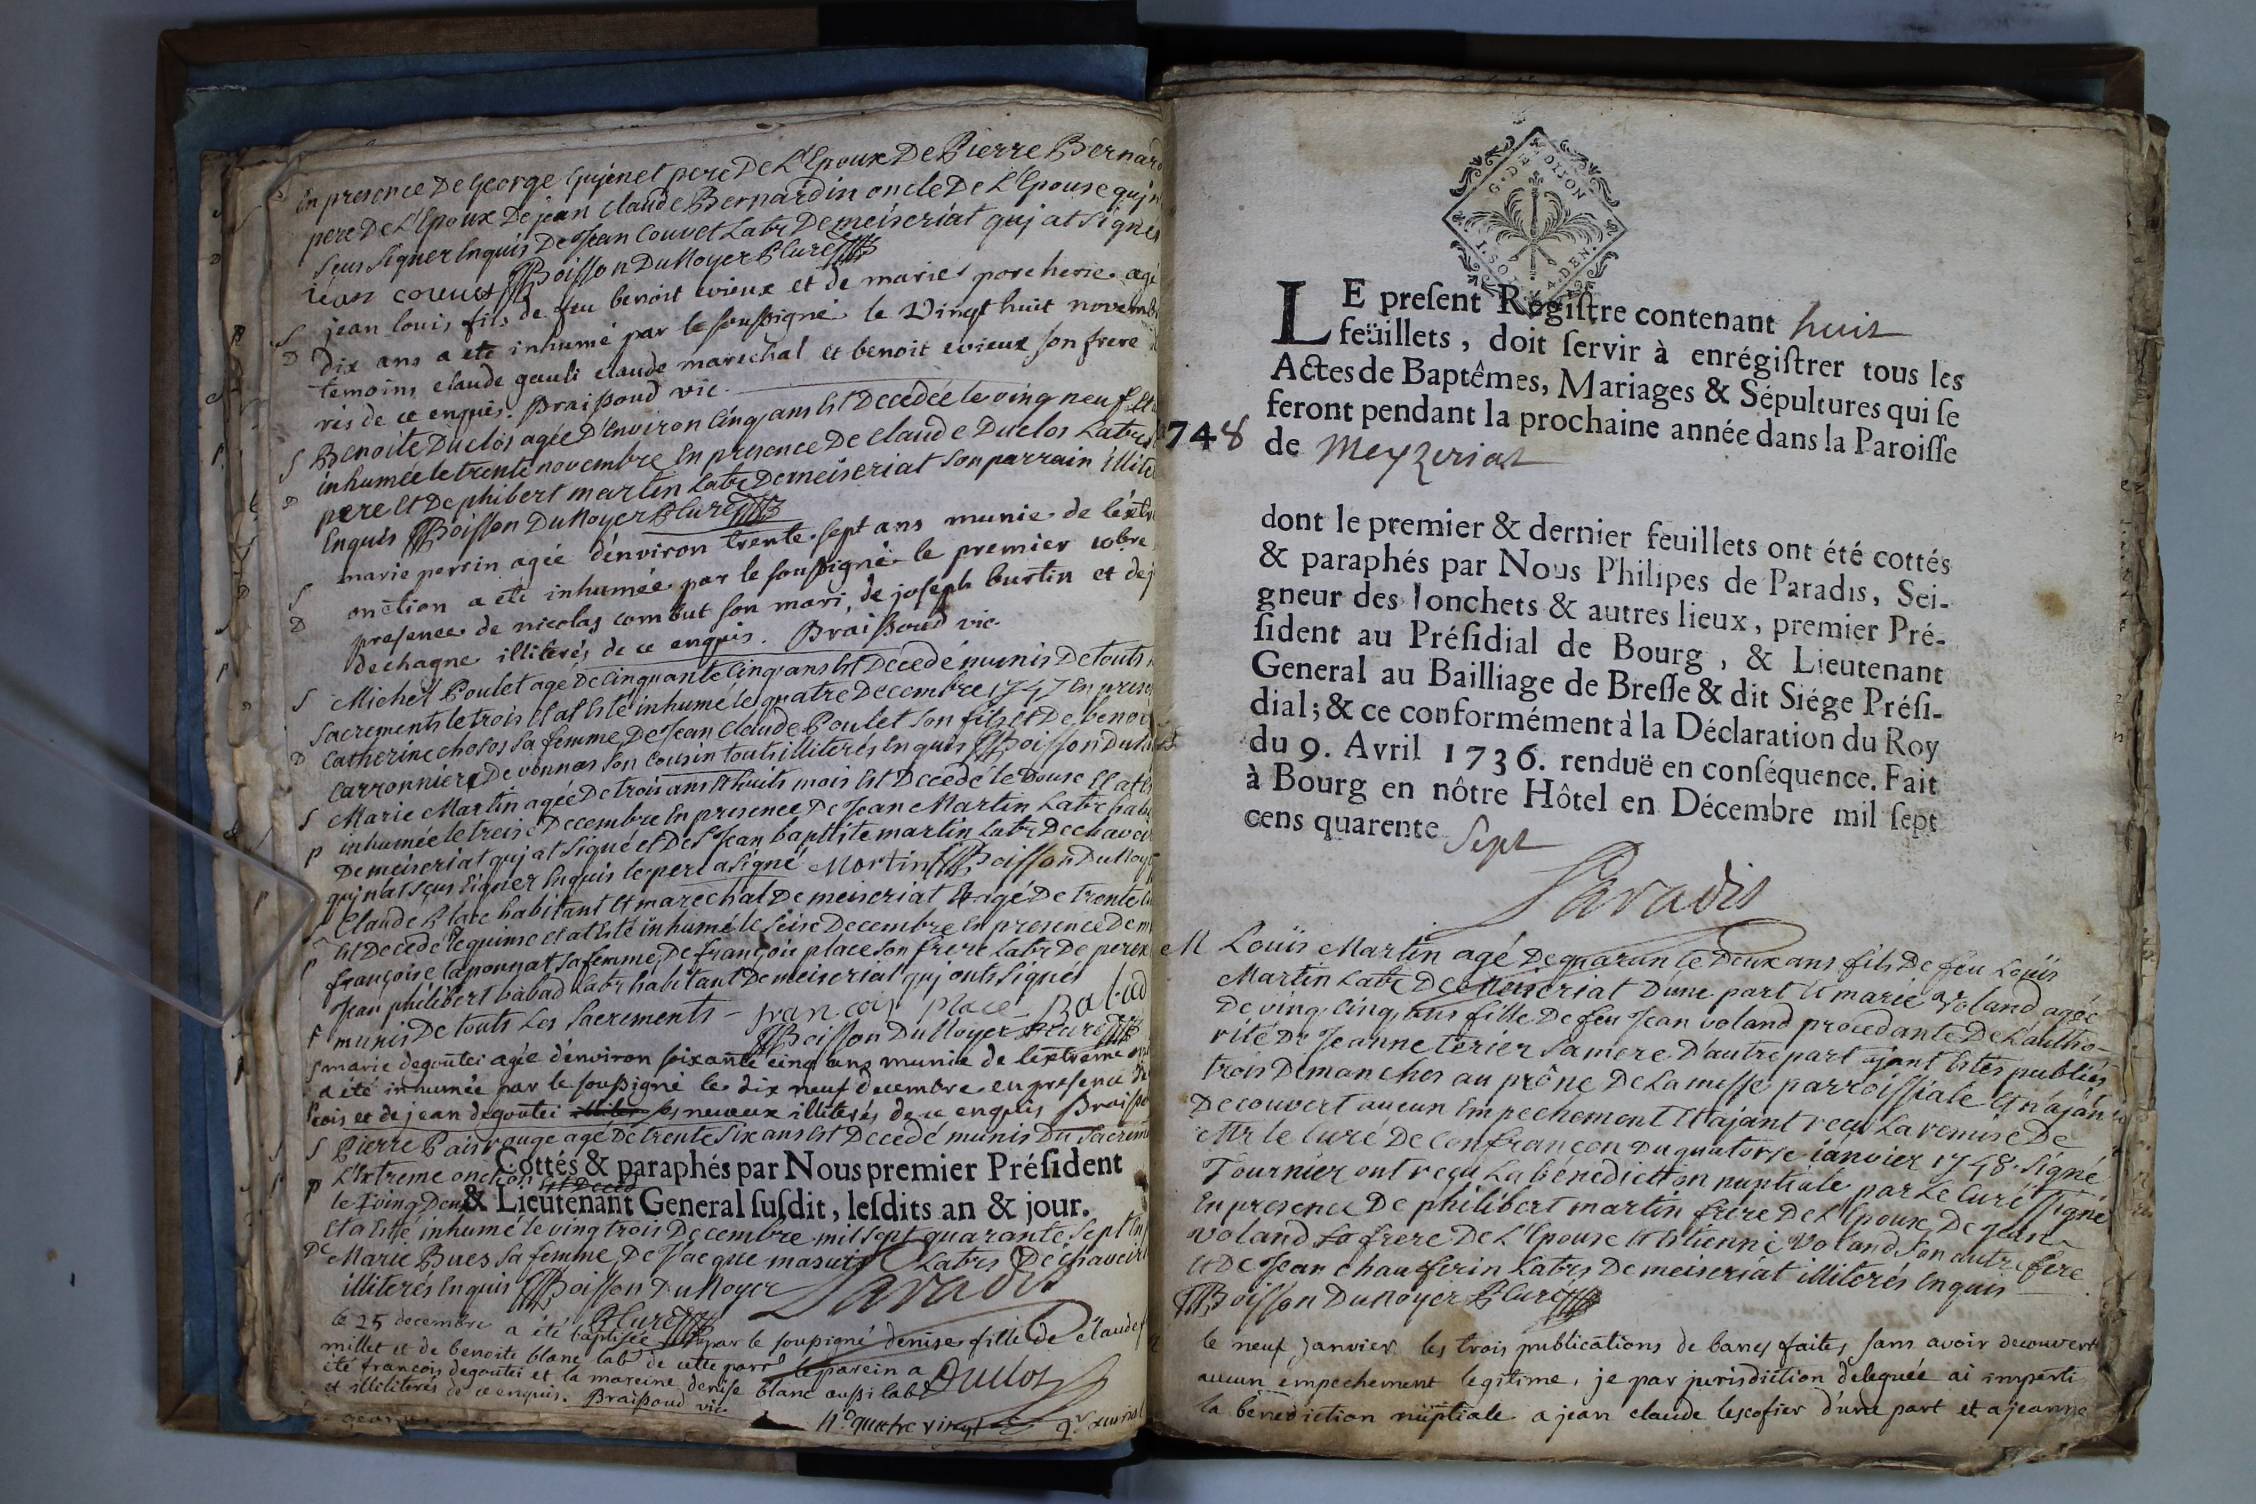 En presence De George Gujenet pere De L'Epoux De Pierre Bernard
pere De L'Epoux De jean claude Bernardin oncle De L'Epouse quj n
sçus signer Enquis De Jean Couvet Labr Demeiseriat quj at signes
jean couvet Boisson DuNoyer Curé
jean louis fils de feu benoit evieux et de marie porcherie agé
dix ans a eté inhumé par le soussigné le Vingt huit novemb
temoins claude gauli claude marechal et benoit evieux son frere
rés de ce enquis. Braissoud vic.
Benoite Duclos agée D'environ Cinq ans Est Decedée le ving neuf Et
inhumée le trente novembre En presence De claude Duclos Labr
pere Et De phibert martin Labr Demeiseriat son parrain illite
Enquis Boisson DuNoyer Curé
marie perrin agée d'environ trente sept ans munie de l'extr
onction a eté inhumée par le soussigné le premier 10bre
presence de nicolas combut son mari, de joseph burtin et de j
dechagne illiterés de ce enquis. Braissoud vic.
Michel Poulet agé De Cinquante Cinq ans Est Decedé munis De touts
sacrements le trois Et at Esté inhumé le quatre Decembre 1747 En presen
Catherine chosos sa femme De Jean Claude Poulet son fils et De benoi
Carronnier De vonnas son cousin touts illiterés Enquis Boisson DuN
Marie Martin agée De trois ans Et huits mois Est Decedé le Douse Et at E
inhumée le treise Decembre En presence De Jean Martin Labr hab
Demeiseriat quj at signé et De Sr Jean baptiste martin Labr De chavei
quj nat sçus signer Enquis le pere a signé Martin Boisson DuNoy
Claude Place habitant Et marechal De meiseriat Agé De trente
Est Decedé le quinse Et at Esté inhumé le seise Decembre En presence De m
françoise taponnat sa femme, De françois place son frere Labr De perex
Jean philibert babad Labr habitant Demeiseriat quj onts signés
munis De touts Les Sacrements - francoy place Babad
Boisson DuNoyer Curé
marie degoutei agée d'environ soixante cinq ans munie de l'extreme
a été inhumée par le soussigné le dix neuf decembre en presence de
cois et de jean degoutei ses neveux illiterés de ce enquis Braisso
Pierre Pain rouge agé De trente Six ans Est Decedé munis Du Sacrem
L'Extreme onction Est Deced
Cottés & paraphés par Nous premier Président
le ving Deux
& Lieutenant General susdit, lesdits an & jour.
Et at Esté inhumé le ving trois Decembre mil sept quarante sept En
De Marie Bues sa femme, De Jacque masuir Labrs De chaveiri
illiterés Enquis Boisson DuNoyer Paradis
Curé
le 25 decembre a été baptisée par le soussigné denise fille de claude
millet et de benoite blanc labr de cette parr le parein a
été francois degoutei et la mareine denise blanc aussi labr Duclos
et illiterés de ce enquis. Braissoud vic.
no quatre vingt
G. DE DIJON
LE present Registre contenant huit
feüillets, doit servir à enrégistrer tous les
Actes de Baptêmes, Mariages & Sépultures qui se
feront pendant la prochaine année dans la Paroisse
1748
de Meyzeriat
dont le premier & dernier feuillets ont été cottés
& paraphés par Nous Philipes de Paradis, Sei-
gneur des Jonchets & autres lieux, premier Pré-
sident au Présidial de Bourg, & Lieutenant
General au Bailliage de Bresse & dit Siége Prési-
dial; & ce conformément à la Déclaration du Roy
du 9. Avril 1736. renduë en conséquence. Fait
à Bourg en nôtre Hôtel en Décembre mil sept
cens quarente Sept
Paradis
M Louïs Martin agé De quarante Deux ans fils De feu Louïs
Martin Labr De Meiseriat D'une part Et marie Voland agée
De ving Cinq ans fille De feu Jean voland procedante De L'autho-
rité De Jeanne terier sa mere D'autre part ajant Estés publiés
trois Dimanches au prône De La messe parroissiale Et n'ajan
Decouvert aucun Empechement Et ajant reçu La remise De
Mr le Curé De Confrançon Du quatorse janvier 1748. Signé
Tournier ont reçu La benediction nuptiale par Le Curé ssigné
En presence De philibert martin frere De L'Epoux, De jean
voland frere De L'Epouse Et Etienne Voland son autre frere
Et De Jean chauferin Labrs De meiseriat illiterés Enquis
Boisson DuNoyer Curé
le neuf janvier les trois publications de bancs faites, sans avoir decouvert
aucun empechement legitime, je par jurisdiction deleguée ai imparti
la benediction nuptiale a jean claude lescofier d'une part et a jeanne